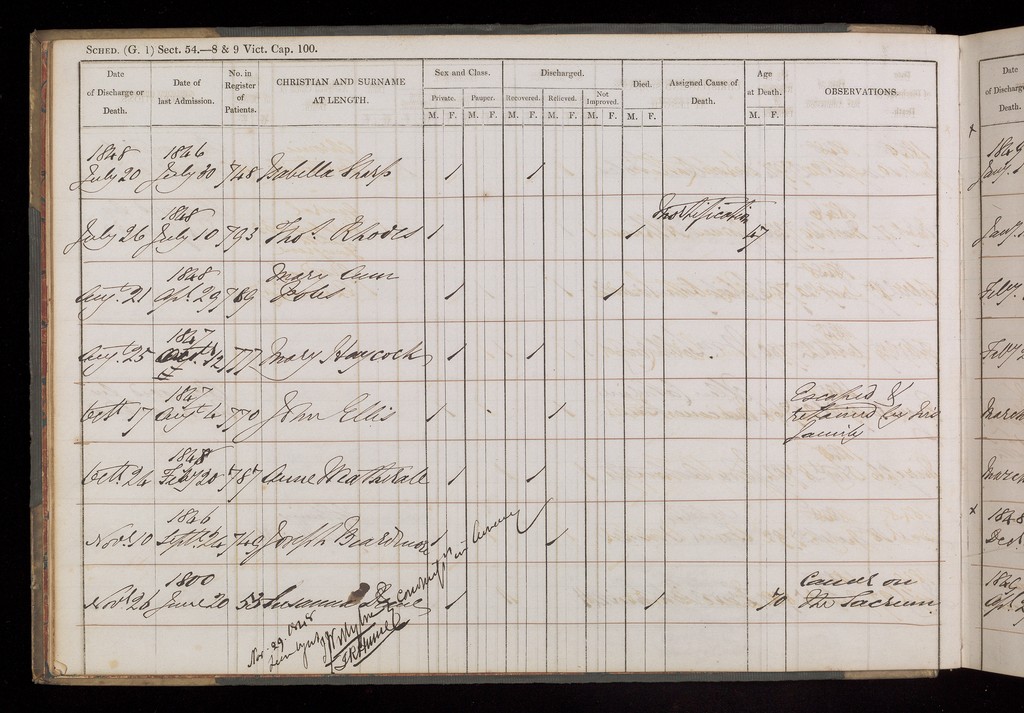 SCHED. (G. 1) Sect. 54.—8 & 9 Vict. Cap. 100.
Date of Discharge or Death.
Date of last Admission.
No. in Register of Patients.
CHRISTIAN AND SURNAME AT LENGTH.
Sex and Class.
Private.
Pauper.
Discharged.
Recovered.
Relieved.
Not Improved.
Died.
Assigned Cause of Death.
Age at Death.
OBSERVATIONS.
M. F. M. F. M. F. M. F. M. F. M. F. M. F.
1848 1846
July 20 July 30 748 Isabella Sharp
1848 Mortification
July 26 July 10 793 Thos. Rhodes 47
1848 Mary Ann
Augt. 21 Apl. 29 789
1847
Augt. 25 Octr. 12 777 Mary Haycock
1847 Escaped &
Octr. 17 Augt. 4 770 John Ellis retained by his
family
1848
Octr. 24 Feby 20 787 Anne
1846
Novr. 10 Septr. 24 749 Joseph Beardmore
1800 Cancer on
Novr. 26 June 20 53 Susanna the Sacrum
70
Nov. 29. 1848
Seen by
Date of Discharge Death.
1849
Jany.
Jany.
Feby.
Feby
March
March
1848
Dec.
1849
Apl.